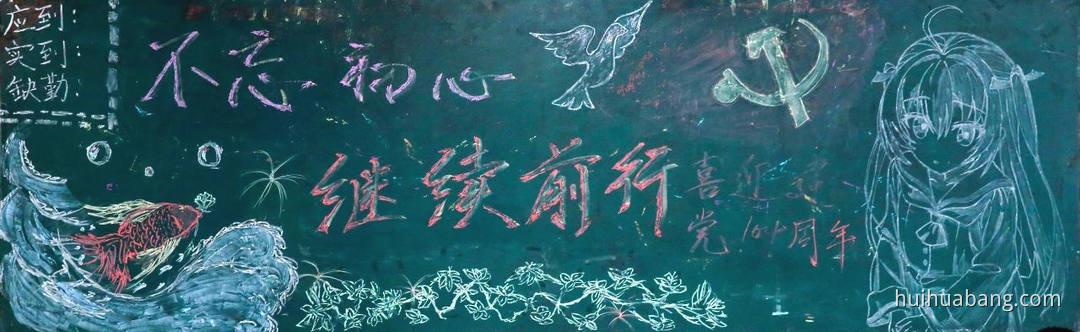 应到:
实到:
缺勤:
不忘初心
继续前行
喜迎建
党101周年
huihuabang.com